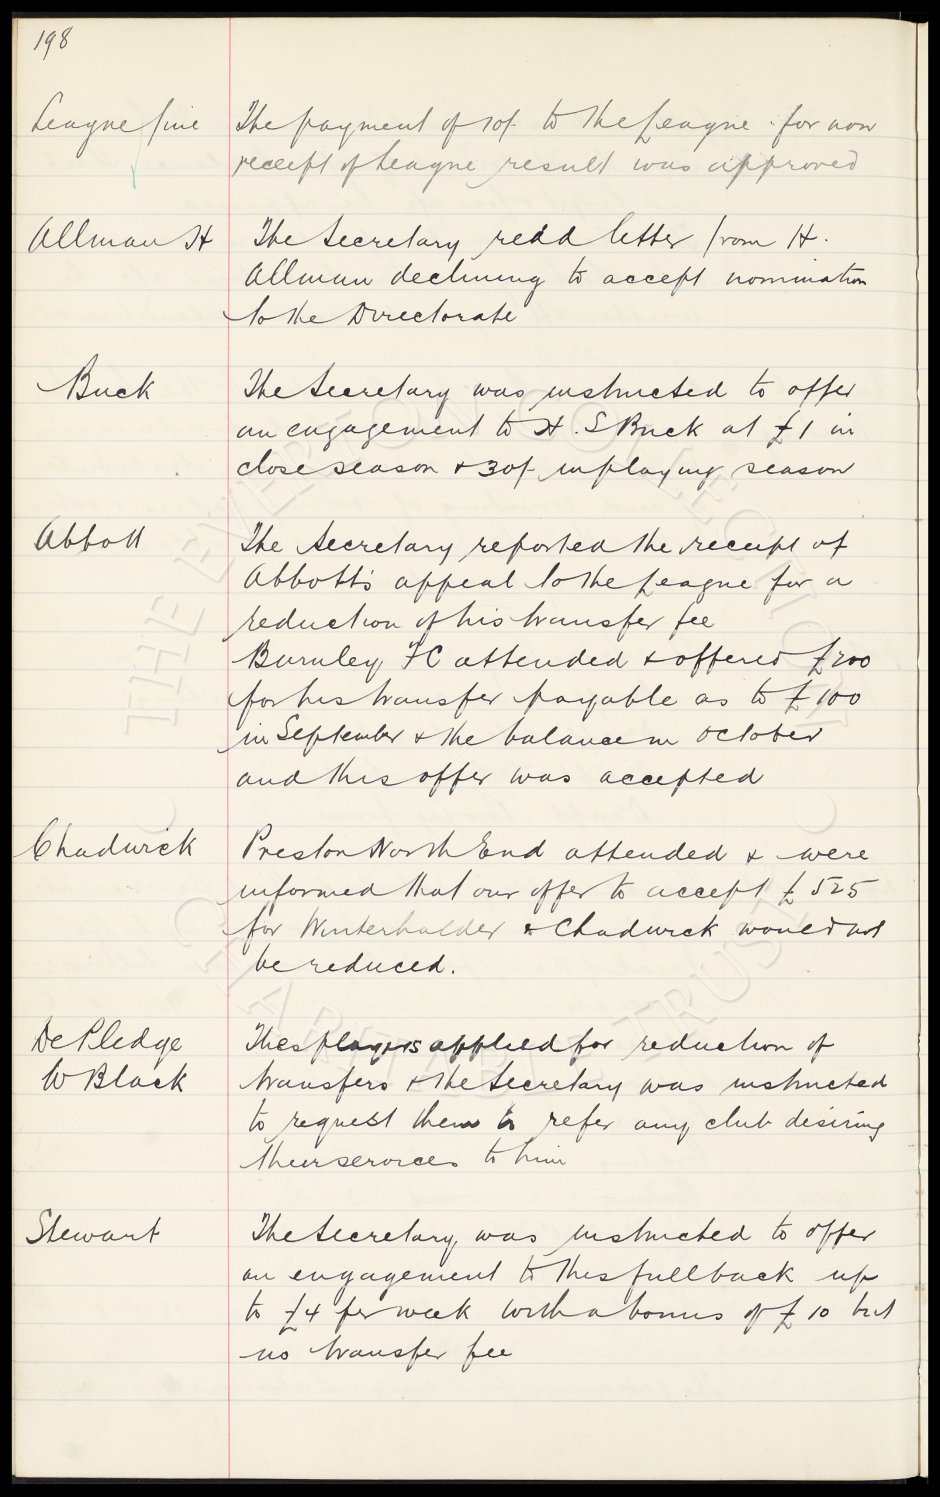 198
League fine The payment of 10/- to the League for non
receipt of League result was approved
Allman H The Secretary read letter from H.
Allman declining to accept nomination
to the Directorate
Buck The Secretary was instructed to offer
an engagement to H. S Buck at £1 in
close season & 30/- in playing season
Abbott The Secretary reported the receipt of
Abbott's appeal to the League for a
reduction of his transfer fee
Burnley FC attended & offered £200
for his transfer payable as to £100
in September & the balance in October
and this offer was accepted
Chadwick Preston North End attended & were
informed that our offer to accept £525
for Winterhalder & Chadwick would not
be reduced.
De Pledge These players applied for reduction of
W Black transfers & the Secretary was instructed
to request them to refer any club desiring
their services to him
Stewart The Secretary was instructed to offer
an engagement to this full back up
to £4 per week with a bonus of £10 but
no transfer fee
THE EVERTON COLLECTION
CHARITABLE TRUST